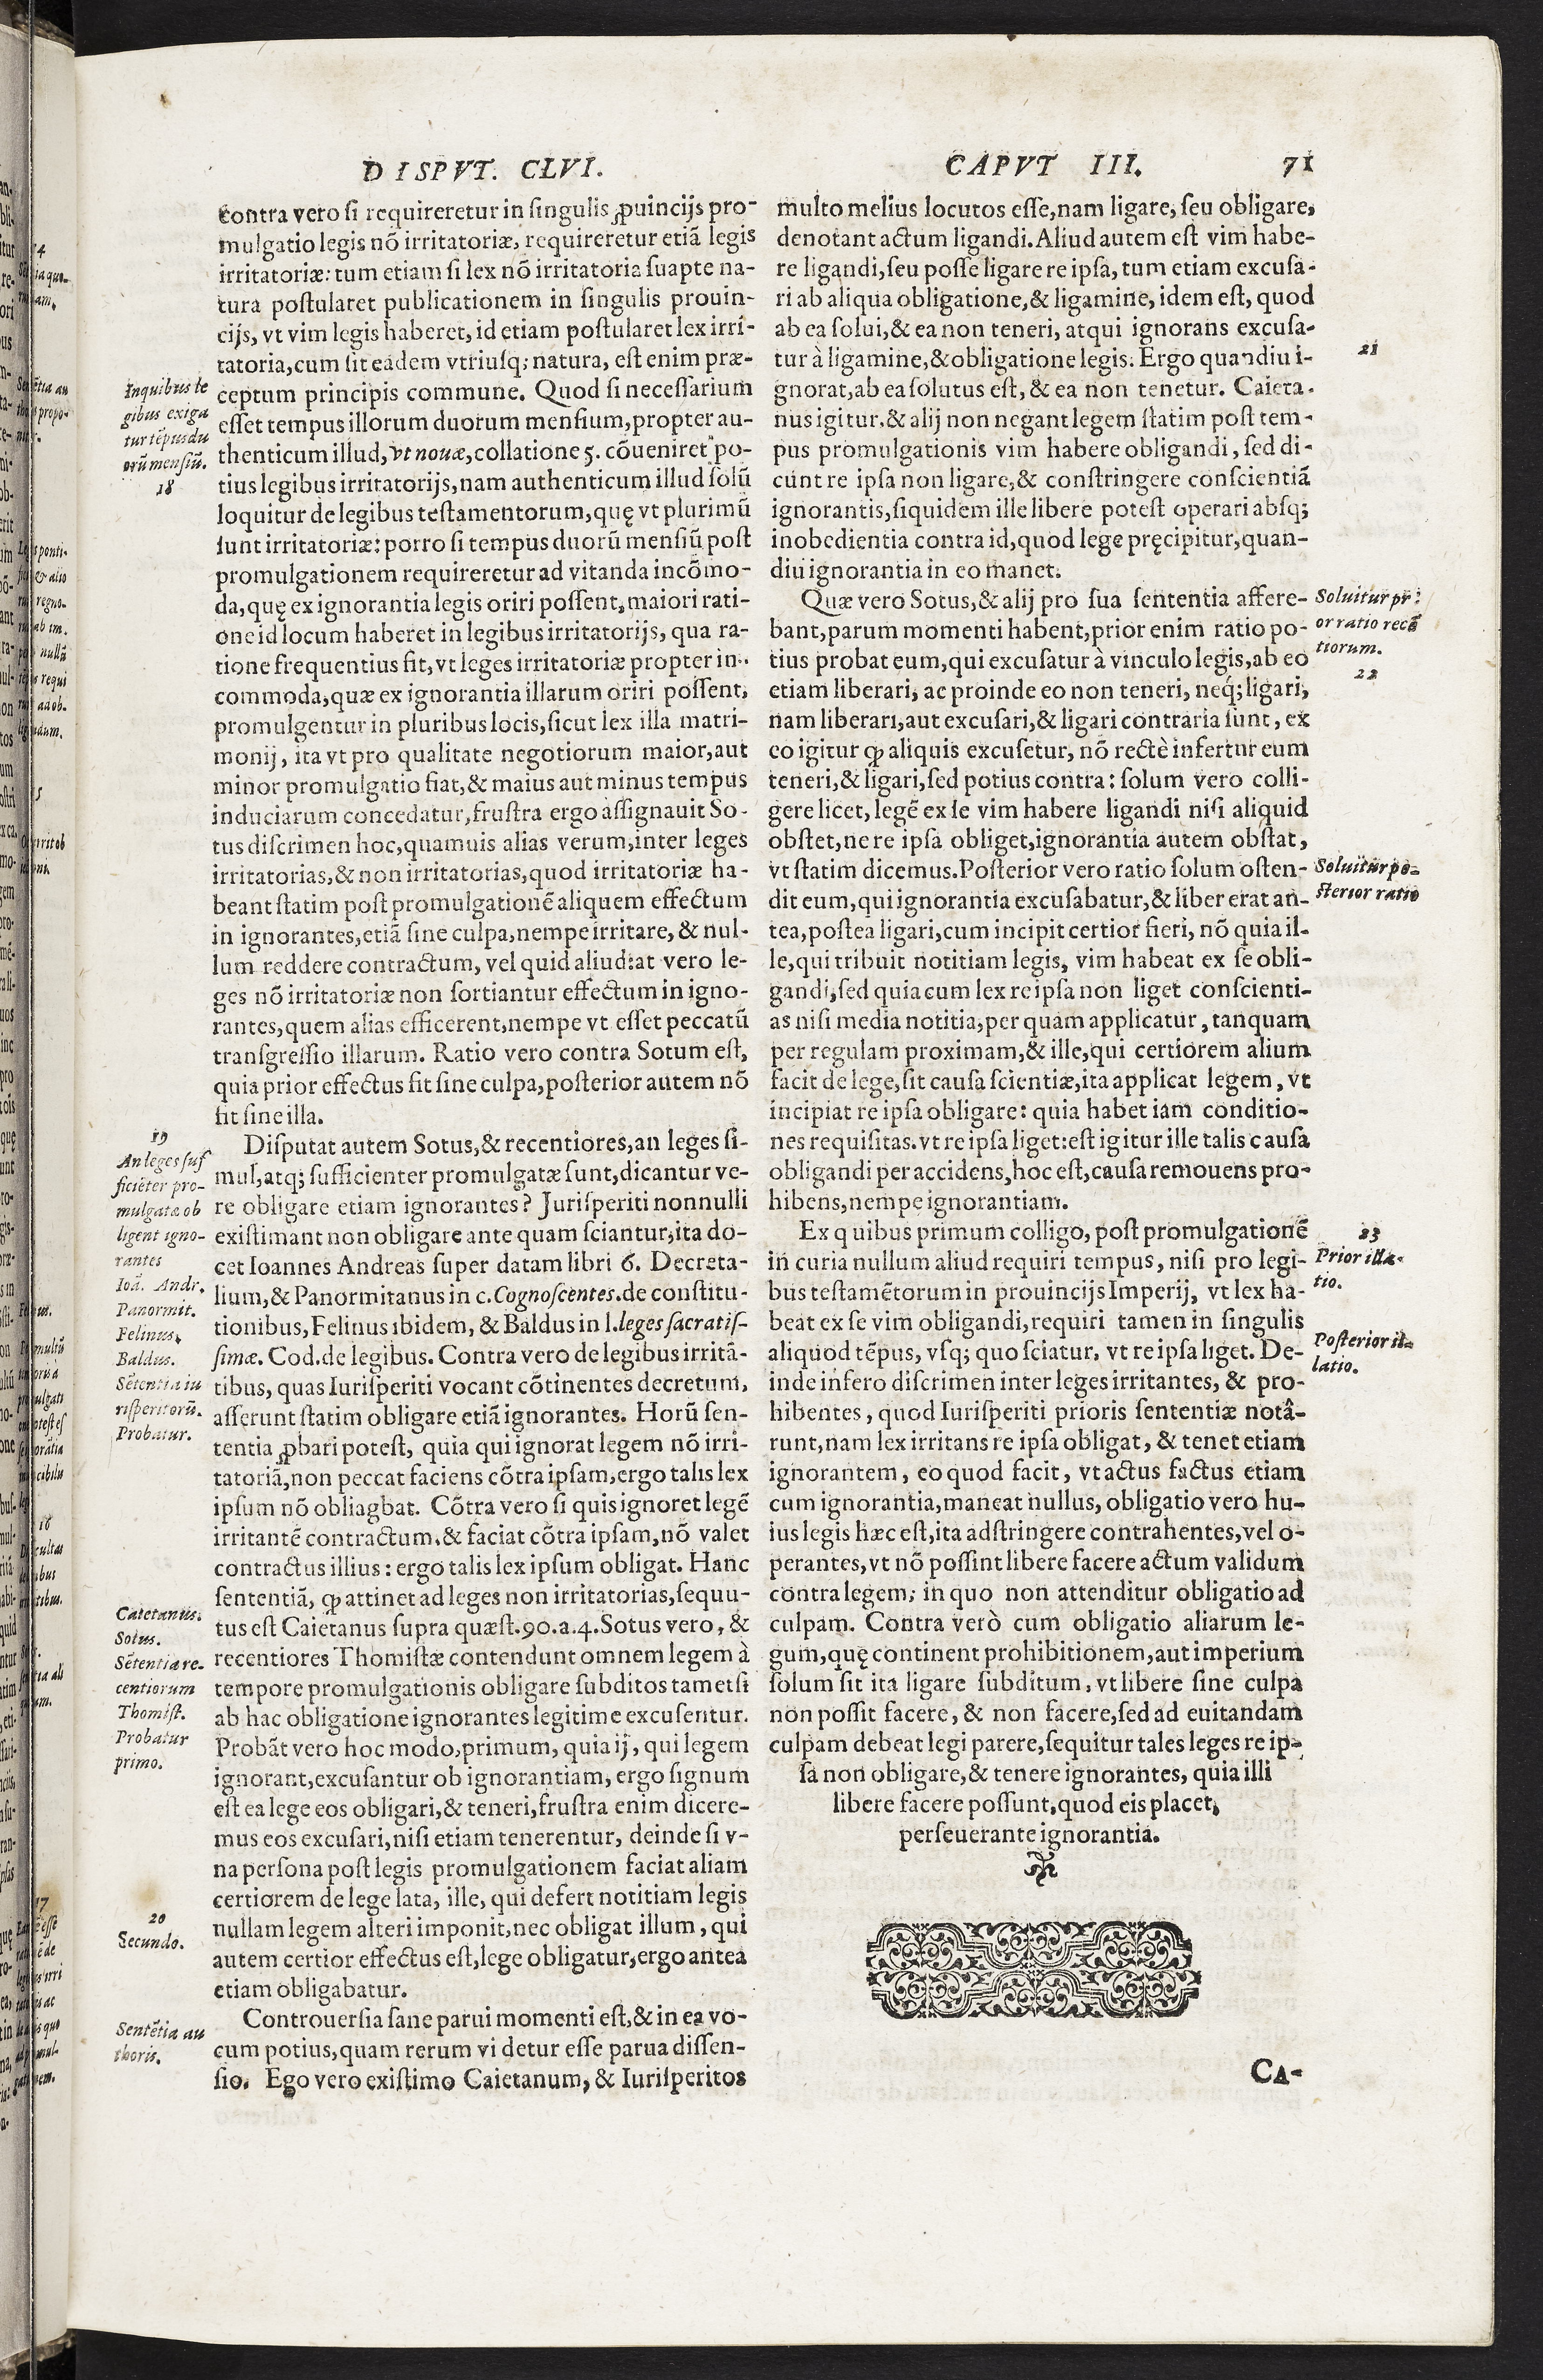 DISPVT. CLVI.
contra vero si requireretur in singulis ꝓuincijs pro-
mulgatio legis nõ irritatoriæ, requireretur etiã legis
irritatoriæ: tum etiam si lex nõ irritatoria suapte na-
tura postularet publicationem in singulis prouin-
cijs, vt vim legis haberet, id etiam postularet lex irri-
tatoria, cum sit eadem vtriusq; natura, est enim præ-
ceptum principis commune. Quod si necessarium
esset tempus illorum duorum mensium, propter au-
thenticum illud, vt nouæ, collatione 5. cõueniret po-
tius legibus irritatorijs, nam authenticum illud solũ
loquitur de legibus testamentorum, quę vt plurimũ
sunt irritatoriæ: porro si tempus duorũ mensiũ post
promulgationem requireretur ad vitanda incõmo-
da, quę ex ignorantia legis oriri possent, maiori rati-
one id locum haberet in legibus irritatorijs, qua ra-
tione frequentius fit, vt leges irritatoriæ propter in-
commoda, quæ ex ignorantia illarum oriri possent,
promulgentur in pluribus locis, sicut lex illa matri-
monij, ita vt pro qualitate negotiorum maior, aut
minor promulgatio fiat, & maius aut minus tempus
induciarum concedatur, frustra ergo assignauit So-
tus discrimen hoc, quamuis alias verum, inter leges
irritatorias, & non irritatorias, quod irritatoriæ ha-
beant statim post promulgationẽ aliquem effectum
in ignorantes, etiã sine culpa, nempe irritare, & nul-
lum reddere contractum, vel quid aliud: at vero le-
ges nõ irritatoriæ non sortiantur effectum in igno-
rantes, quem alias efficerent, nempe vt esset peccatũ
transgressio illarum. Ratio vero contra Sotum est,
quia prior effectus fit sine culpa, posterior autem nõ
fit sine illa.
Disputat autem Sotus, & recentiores, an leges si-
mul, atq; sufficienter promulgatæ sunt, dicantur ve-
re obligare etiam ignorantes? Jurisperiti nonnulli
existimant non obligare ante quam sciantur, ita do-
cet Ioannes Andreas super datam libri 6. Decreta-
lium, & Panormitanus in c. Cognoscentes. de constitu-
tionibus, Felinus ibidem, & Baldus in l. leges sacratis-
simæ. Cod. de legibus. Contra vero de legibus irritã-
tibus, quas Iurisperiti vocant cõtinentes decretum,
asserunt statim obligare etiã ignorantes. Horũ sen-
tentia ꝓbari potest, quia qui ignorat legem nõ irri-
tatoriã, non peccat faciens cõtra ipsam, ergo talis lex
ipsum nõ obliagbat. Cõtra vero si quis ignoret legẽ
irritantẽ contractum, & faciat cõtra ipsam, nõ valet
contractus illius: ergo talis lex ipsum obligat. Hanc
sententiã, ꝙ attinet ad leges non irritatorias, sequu-
tus est Caietanus supra quæst. 90. a. 4. Sotus vero, &
recentiores Thomistæ contendunt omnem legem à
tempore promulgationis obligare subditos tametsi
ab hac obligatione ignorantes legitime excusentur.
Probãt vero hoc modo, primum, quia ij, qui legem
ignorant, excusantur ob ignorantiam, ergo signum
est ea lege eos obligari, & teneri, frustra enim dicere-
mus eos excusari, nisi etiam tenerentur, deinde si v-
na persona post legis promulgationem faciat aliam
certiorem de lege lata, ille, qui defert notitiam legis
nullam legem alteri imponit, nec obligat illum, qui
autem certior effectus est, lege obligatur, ergo antea
etiam obligabatur.
Controuersia sane parui momenti est, & in ea vo-
cum potius, quam rerum vi detur esse parua dissen-
sio. Ego vero existimo Caietanum, & Iurisperitos
In quibus le
gibus exiga
tur tẽpus du
orũ mensiũ.
18
19
An leges suf
ficiẽter pro-
mulgatæ ob
ligent igno-
rantes
Ioã. Andr.
Panormit.
Felinus.
Baldus.
Sẽtentia iu
risperitorũ.
Probatur.
Caietanus.
Sotus.
Sẽtentia re-
centiorum
Thomist.
Probatur
primo.
20
Secundo.
Sentẽtia au
thoris.
CAPVT III. 71
multo melius locutos esse, nam ligare, seu obligare,
denotant actum ligandi. Aliud autem est vim habe-
re ligandi, seu posse ligare re ipsa, tum etiam excusa-
ri ab aliqua obligatione, & ligamine, idem est, quod
ab ea solui, & ea non teneri, atqui ignorans excusa-
tur à ligamine, & obligatione legis. Ergo quandiu i-
gnorat, ab ea solutus est, & ea non tenetur. Caieta-
nus igitur, & alij non negant legem statim post tem-
pus promulgationis vim habere obligandi, sed di-
cunt re ipsa non ligare, & constringere conscientiã
ignorantis, siquidem ille libere potest operari absq;
inobedientia contra id, quod lege pręcipitur, quan-
diu ignorantia in eo manet.
Quæ vero Sotus, & alij pro sua sententia affere-
bant, parum momenti habent, prior enim ratio po-
tius probat eum, qui excusatur à vinculo legis, ab eo
etiam liberari, ac proinde eo non teneri, neq́; ligari,
nam liberari, aut excusari, & ligari contraria sunt, ex
eo igitur ꝙ aliquis excusetur, nõ rectè infertur eum
teneri, & ligari, sed potius contra: solum vero colli-
gere licet, legẽ ex se vim habere ligandi nisi aliquid
obstet, ne re ipsa obliget, ignorantia autem obstat,
vt statim dicemus. Posterior vero ratio solum osten-
dit eum, qui ignorantia excusabatur, & liber erat an-
tea, postea ligari, cum incipit certior fieri, nõ quia il-
le, qui tribuit notitiam legis, vim habeat ex se obli-
gandi, sed quia cum lex re ipsa non liget conscienti-
as nisi media notitia, per quam applicatur, tanquam
per regulam proximam, & ille, qui certiorem alium
facit de lege, sit causa scientiæ, ita applicat legem, vt
incipiat re ipsa obligare: quia habet iam conditio-
nes requisitas. vt re ipsa liget: est igitur ille talis causa
obligandi per accidens, hoc est, causa remouens pro-
hibens, nempe ignorantiam.
Ex quibus primum colligo, post promulgationẽ
in curia nullum aliud requiri tempus, nisi pro legi-
bus testamẽtorum in prouincijs Imperij, vt lex ha-
beat ex se vim obligandi, requiri tamen in singulis
aliquod tẽpus, vsq; quo sciatur, vt re ipsa liget. De-
inde infero discrimen inter leges irritantes, & pro-
hibentes, quod Iurisperiti prioris sententiæ notâ-
runt, nam lex irritans re ipsa obligat, & tenet etiam
ignorantem, eo quod facit, vt actus factus etiam
cum ignorantia, maneat nullus, obligatio vero hu-
ius legis hæc est, ita adstringere contrahentes, vel o-
perantes, vt nõ possint libere facere actum validum
contra legem; in quo non attenditur obligatio ad
culpam. Contra verò cum obligatio aliarum le-
gum, quę continent prohibitionem, aut imperium
solum sit ita ligare subditum, vt libere sine culpa
non possit facere, & non facere, sed ad euitandam
culpam debeat legi parere, sequitur tales leges re ip-
sa non obligare, & tenere ignorantes, quia illi
libere facere possunt, quod eis placet,
perseuerante ignorantia.
21
Soluitur pri
or ratio recẽ
tiorum.
22
Soluitur po-
sterior ratio
23
Prior illa-
tio.
Posterior il-
latio.
CA-